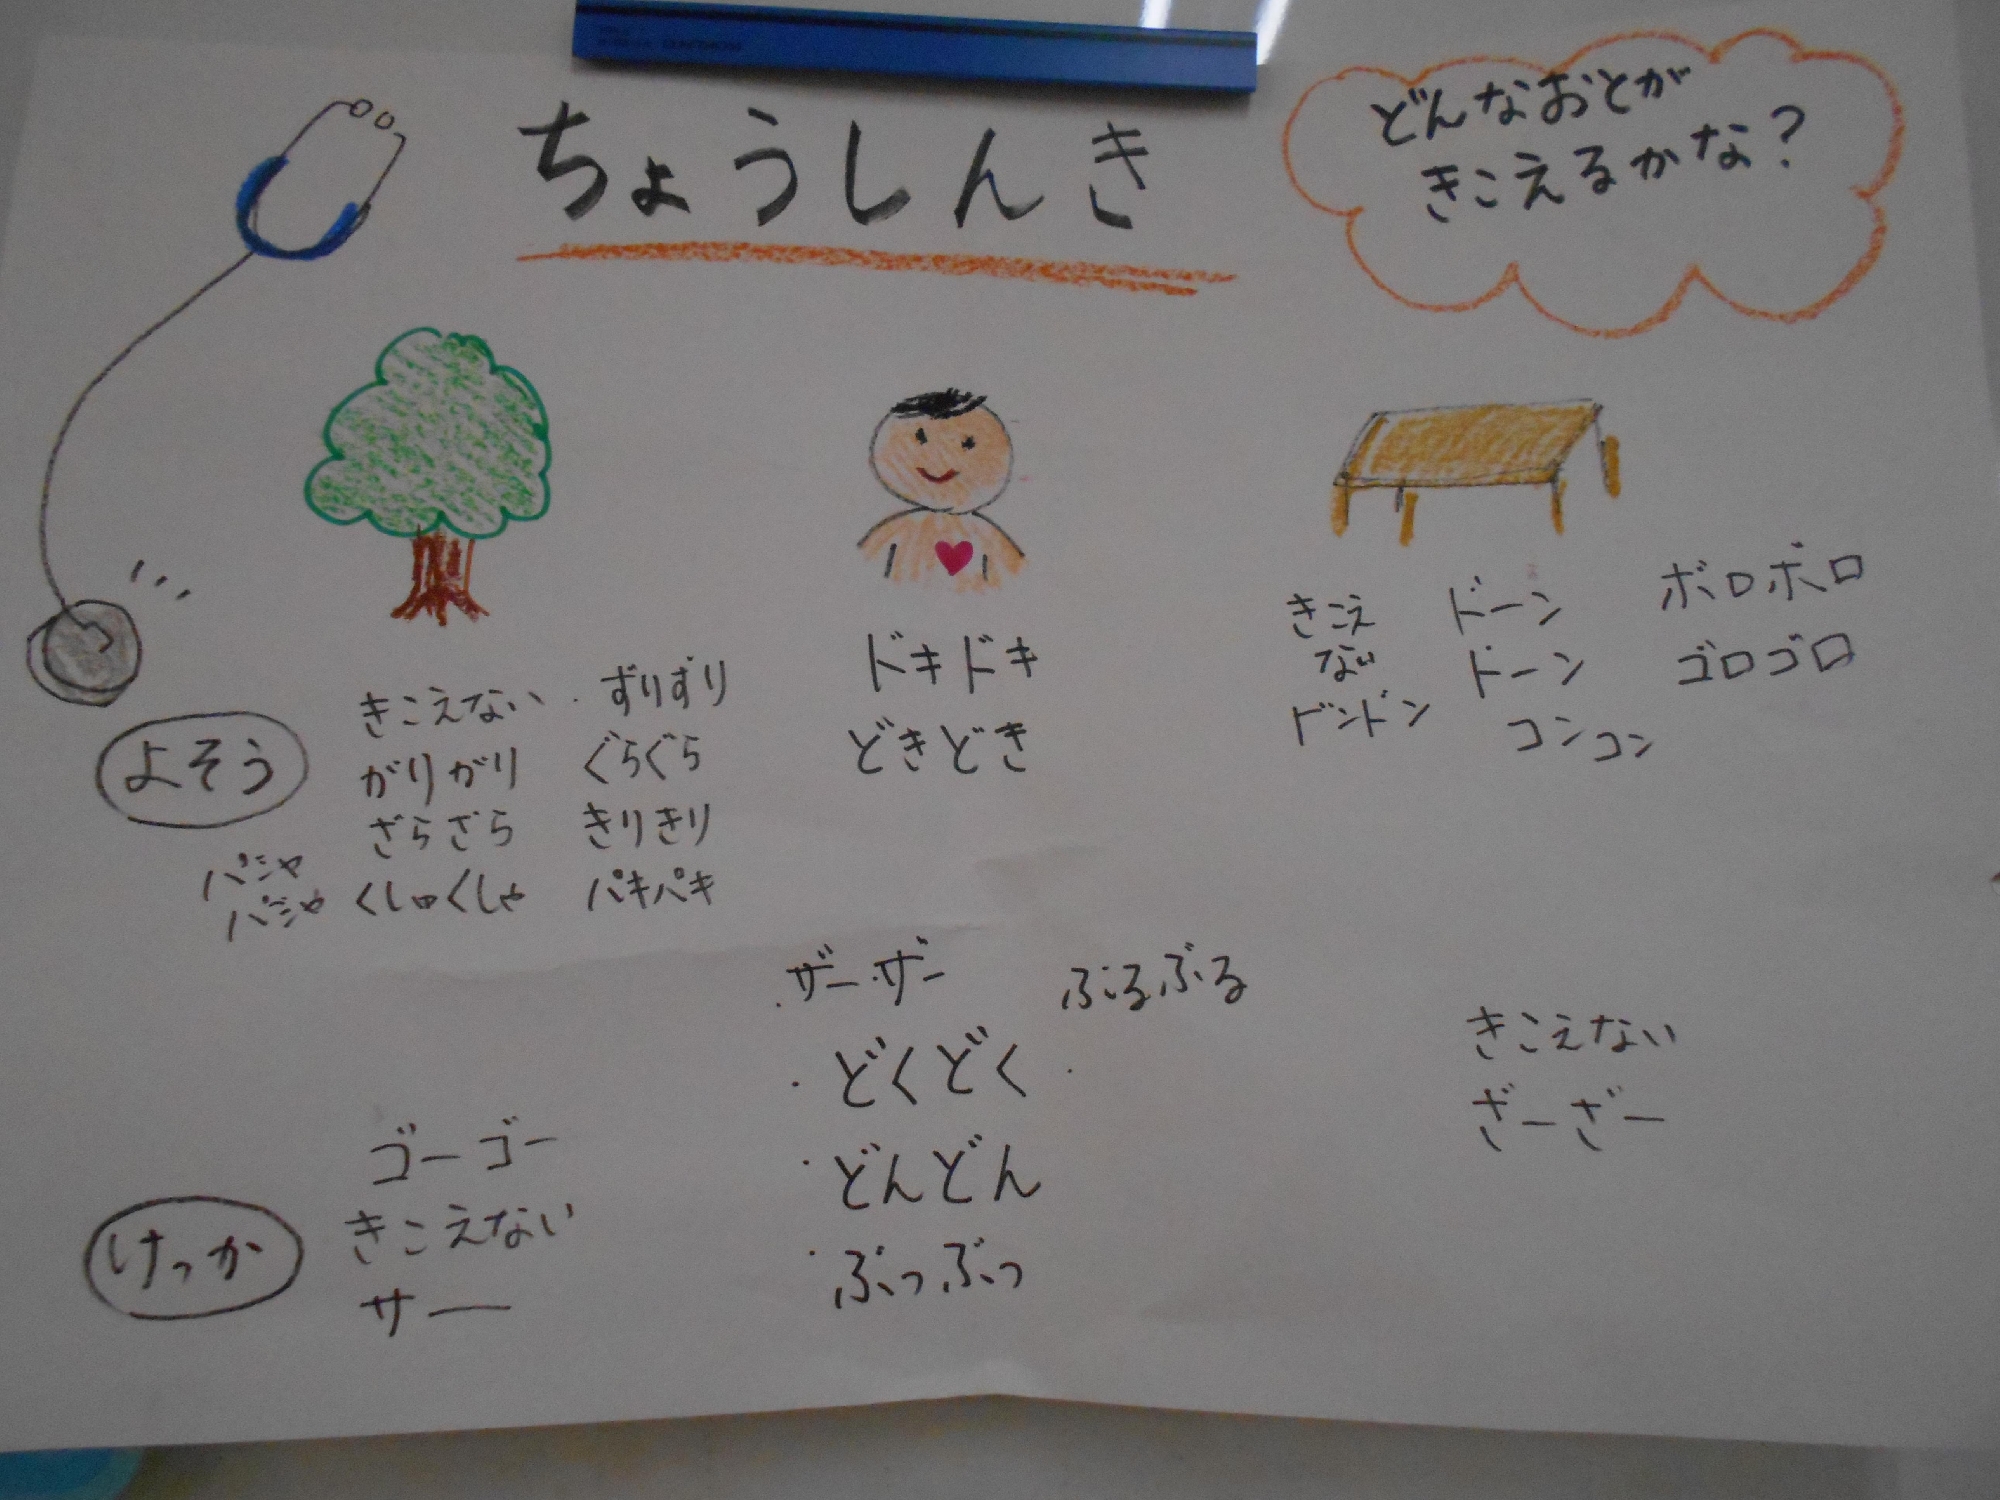 ちょうしんき
どんなおとが
きこえるかな?
よそう
きこえない
がりがり
ざらざら
くしゅくしゃ
パシャ
パシャ
ずりずり
ぐらぐら
きりきり
パキパキ
ドキドキ
どきどき
きこえ
ない
ドンドン
ドーン
ドーン
コンコン
ボロボロ
ゴロゴロ
けっか
ゴーゴー
きこえない
サー
ザーザー
・どくどく
・どんどん
・ぶっぶっ
ぶるぶる
きこえない
ざーざー